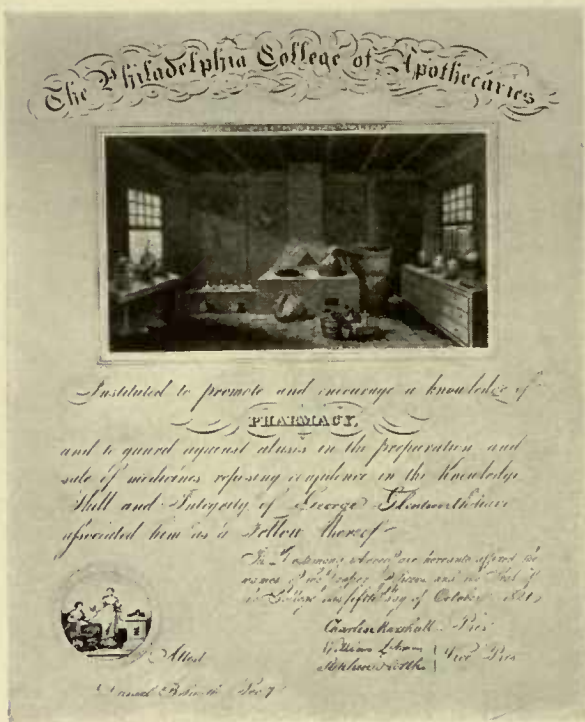 The Philadelphia College of Apothecaries
Instituted to promote and encourage a knowledge of
PHARMACY,
and to guard against abuses in the preparation and
sale of medicines reposing confidence in the Knowledge
Skill and Integrity of George Glentworth have
associated him as a Fellow thereof
In Testimony whereof are hereunto affixed the
names of the proper officers and the Seal of
the College this fifth day of October 1821
Charles Marshall Pres
William Lehman
Stephen North Vice Pres
Attest
Daniel Secy